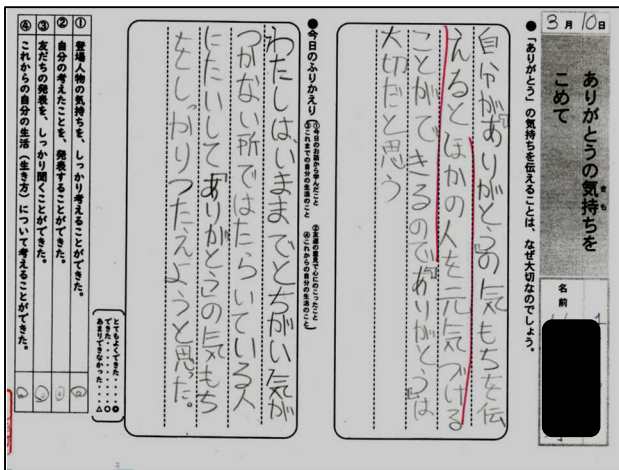 3月10日
ありがとうの気持ちを
こめて
名前
●「ありがとう」の気持ちを伝えることは、なぜ大切なのでしょう。
自分が「ありがとう」の気もちを伝
えるとほかの人を元気づける
ことができるので「ありがとう」は
大切だと思う
●今日のふりかえり
①今日のお話から学んだこと
②友達の意見で心にのこったこと
③これまでの自分の生活のこと
④これからの自分の生活のこと
わたしは、いままでとちがい気が
つかない所ではたらいている人
にたいして「ありがとう」の気もち
をしっかりつたえようと思った。
とてもよくできた・・・・・◎
できた・・・・・・・・・○
あまりできなかった・・・・△
① 登場人物の気持ちを、しっかり考えることができた。
② 自分の考えたことを、発表することができた。
③ 友だちの発表を、しっかり聞くことができた。
④ これからの自分の生活（生き方）について考えることができた。